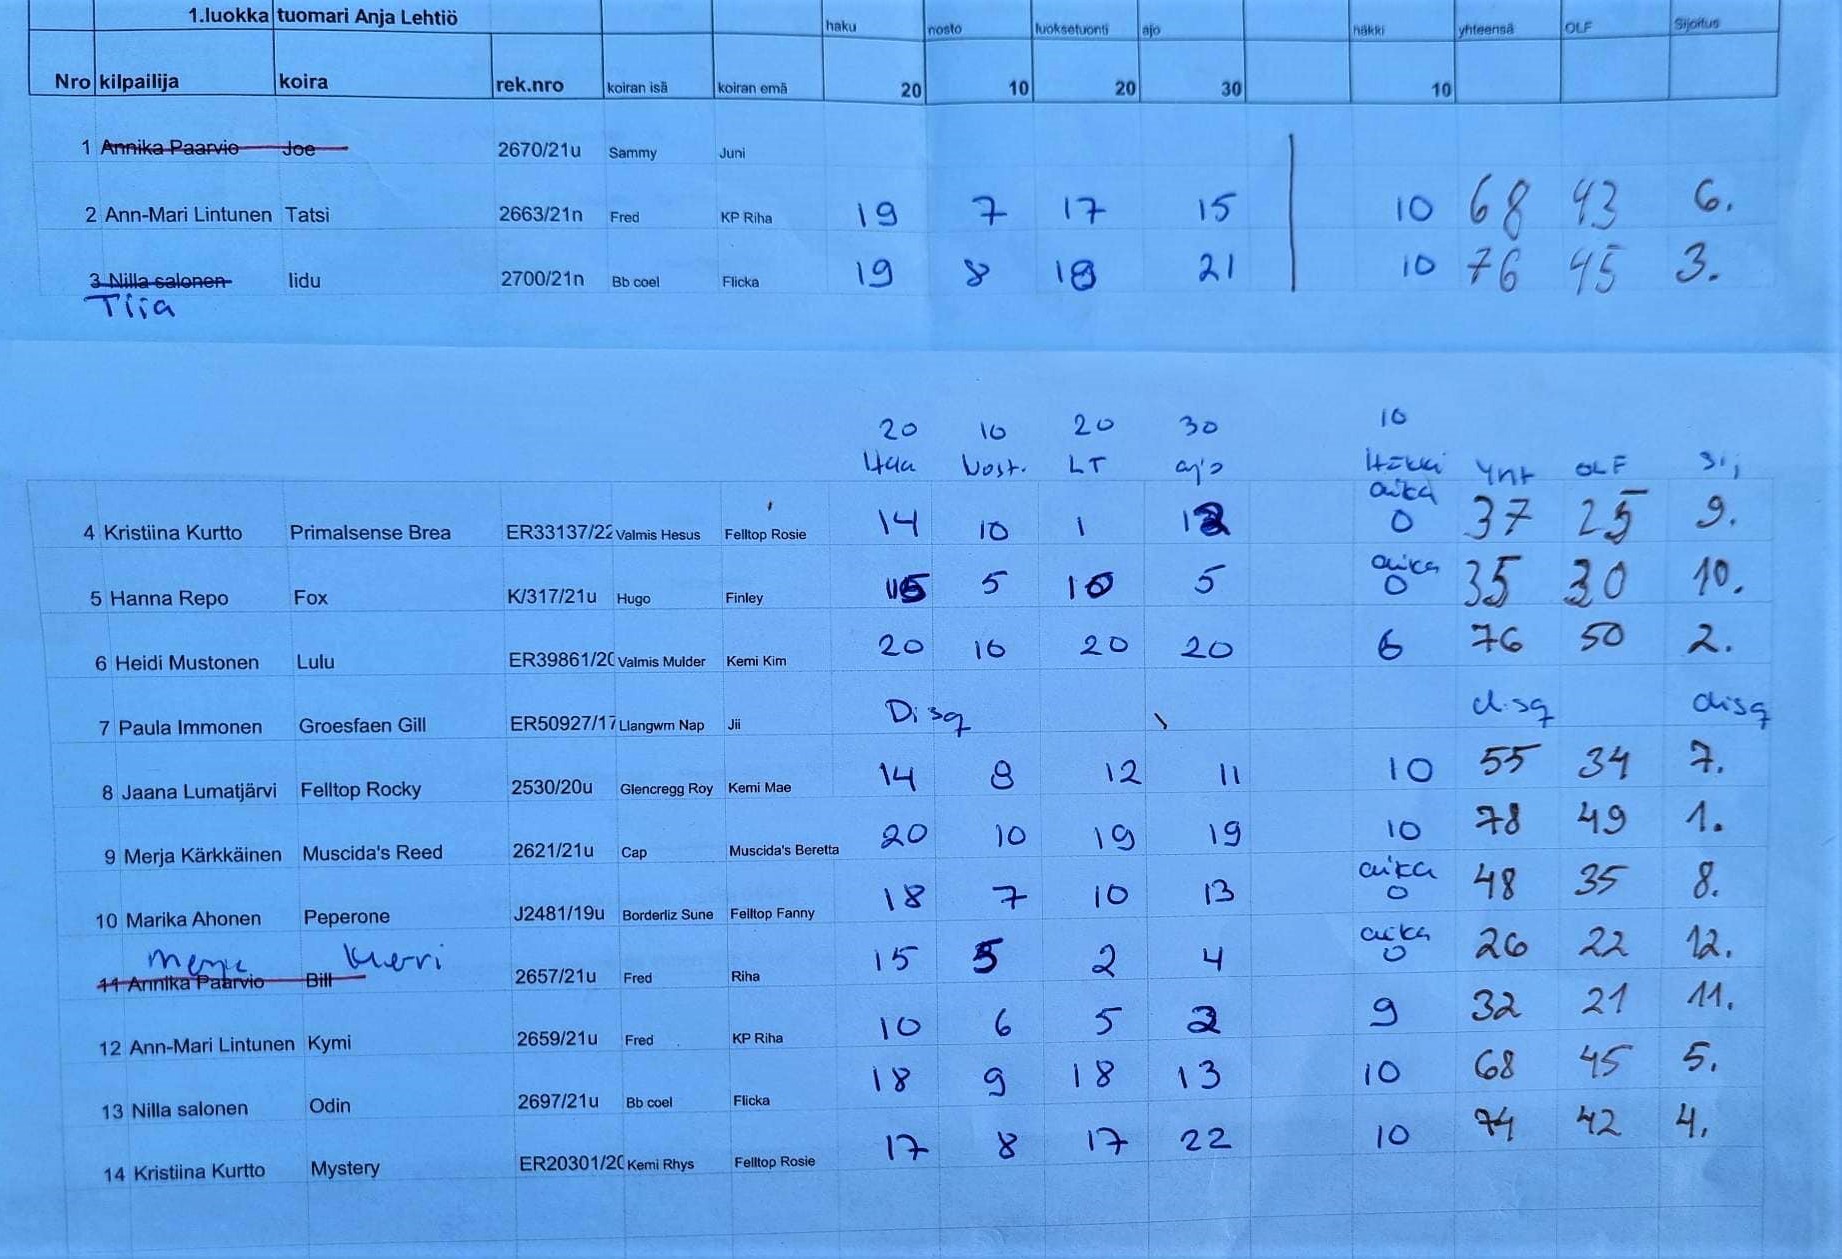 1.luokka tuomari Anja Lehtiö haku nosto luoksetuonti ajo häkki yhteensä OLF Sijoitus
Nro kilpailija koira rek.nro koiran isä koiran emä 20 10 20 30 10
1 Annika Paarvio Joe 2670/21u Sammy Juni
2 Ann-Mari Lintunen Tatsi 2663/21n Fred KP Riha 19 7 17 15 10 68 43 6.
3 Nilla salonen Iidu 2700/21n Bb coel Flicka 19 8 18 21 10 76 45 3.
Tiia
20 10 20 30 10
Haa Nost. LT ajo Häkki Yht OLF Sij
aika
4 Kristiina Kurtto Primalsense Brea ER33137/22 Valmis Hesus Felltop Rosie 14 10 1 12 0 37 25 9.
aika
5 Hanna Repo Fox K/317/21u Hugo Finley 15 5 10 5 0 35 30 10.
6 Heidi Mustonen Lulu ER39861/20 Valmis Mulder Kemi Kim 20 10 20 20 6 76 50 2.
7 Paula Immonen Groesfaen Gill ER50927/17 Llangwm Nap Jii Disq disq disq
8 Jaana Lumatjärvi Felltop Rocky 2530/20u Glencregg Roy Kemi Mae 14 8 12 11 10 55 34 7.
9 Merja Kärkkäinen Muscida's Reed 2621/21u Cap Muscida's Beretta 20 10 19 19 10 78 49 1.
aika
10 Marika Ahonen Peperone J2481/19u Borderliz Sune Felltop Fanny 18 7 10 13 0 48 35 8.
Merja aika
11 Annika Paarvio Bill 2657/21u Fred Riha 15 5 2 4 0 26 22 12.
12 Ann-Mari Lintunen Kymi 2659/21u Fred KP Riha 10 6 5 2 9 32 21 11.
13 Nilla salonen Odin 2697/21u Bb coel Flicka 18 9 18 13 10 68 45 5.
14 Kristiina Kurtto Mystery ER20301/20 Kemi Rhys Felltop Rosie 17 8 17 22 10 74 42 4.